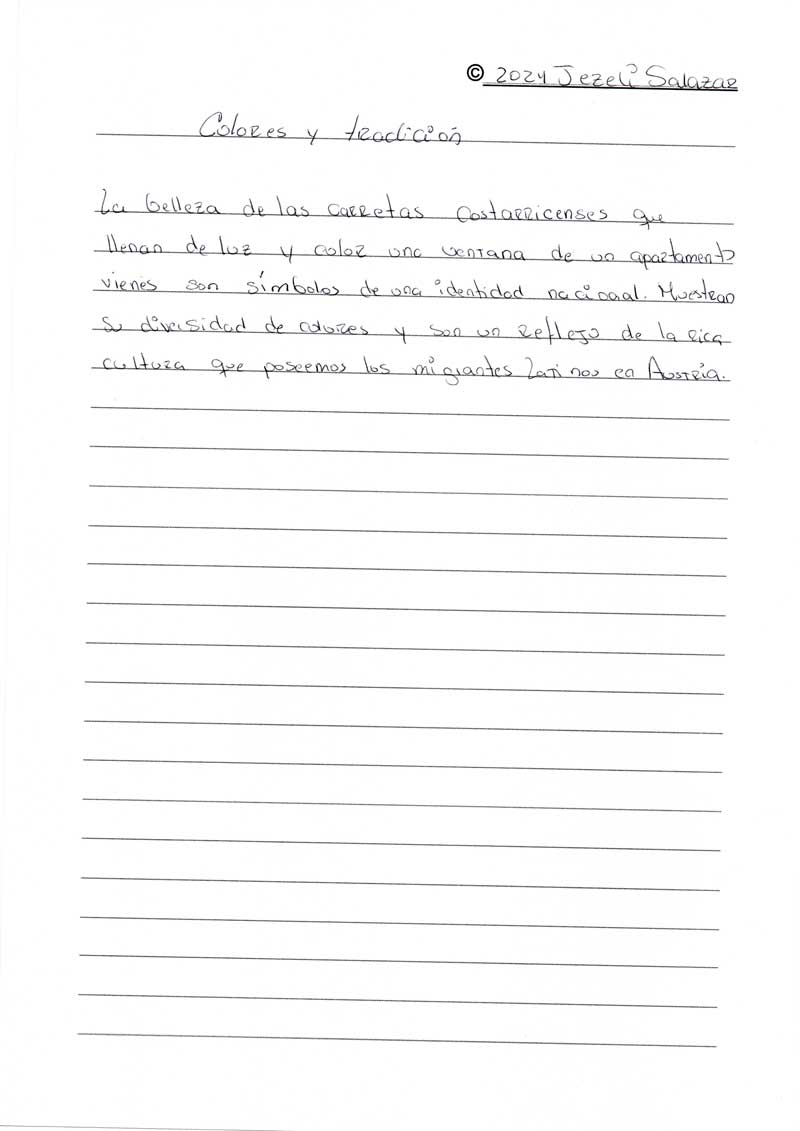 © 2024 Jezelí Salazar
Colores y tradición
La belleza de las carretas costarricenses que
llenan de luz y color una ventana de un apartamento
vienes son símbolos de una identidad nacional. Muestran
su diversidad de colores y son un reflejo de la rica
cultura que poseemos los migrantes latinos en Austria.